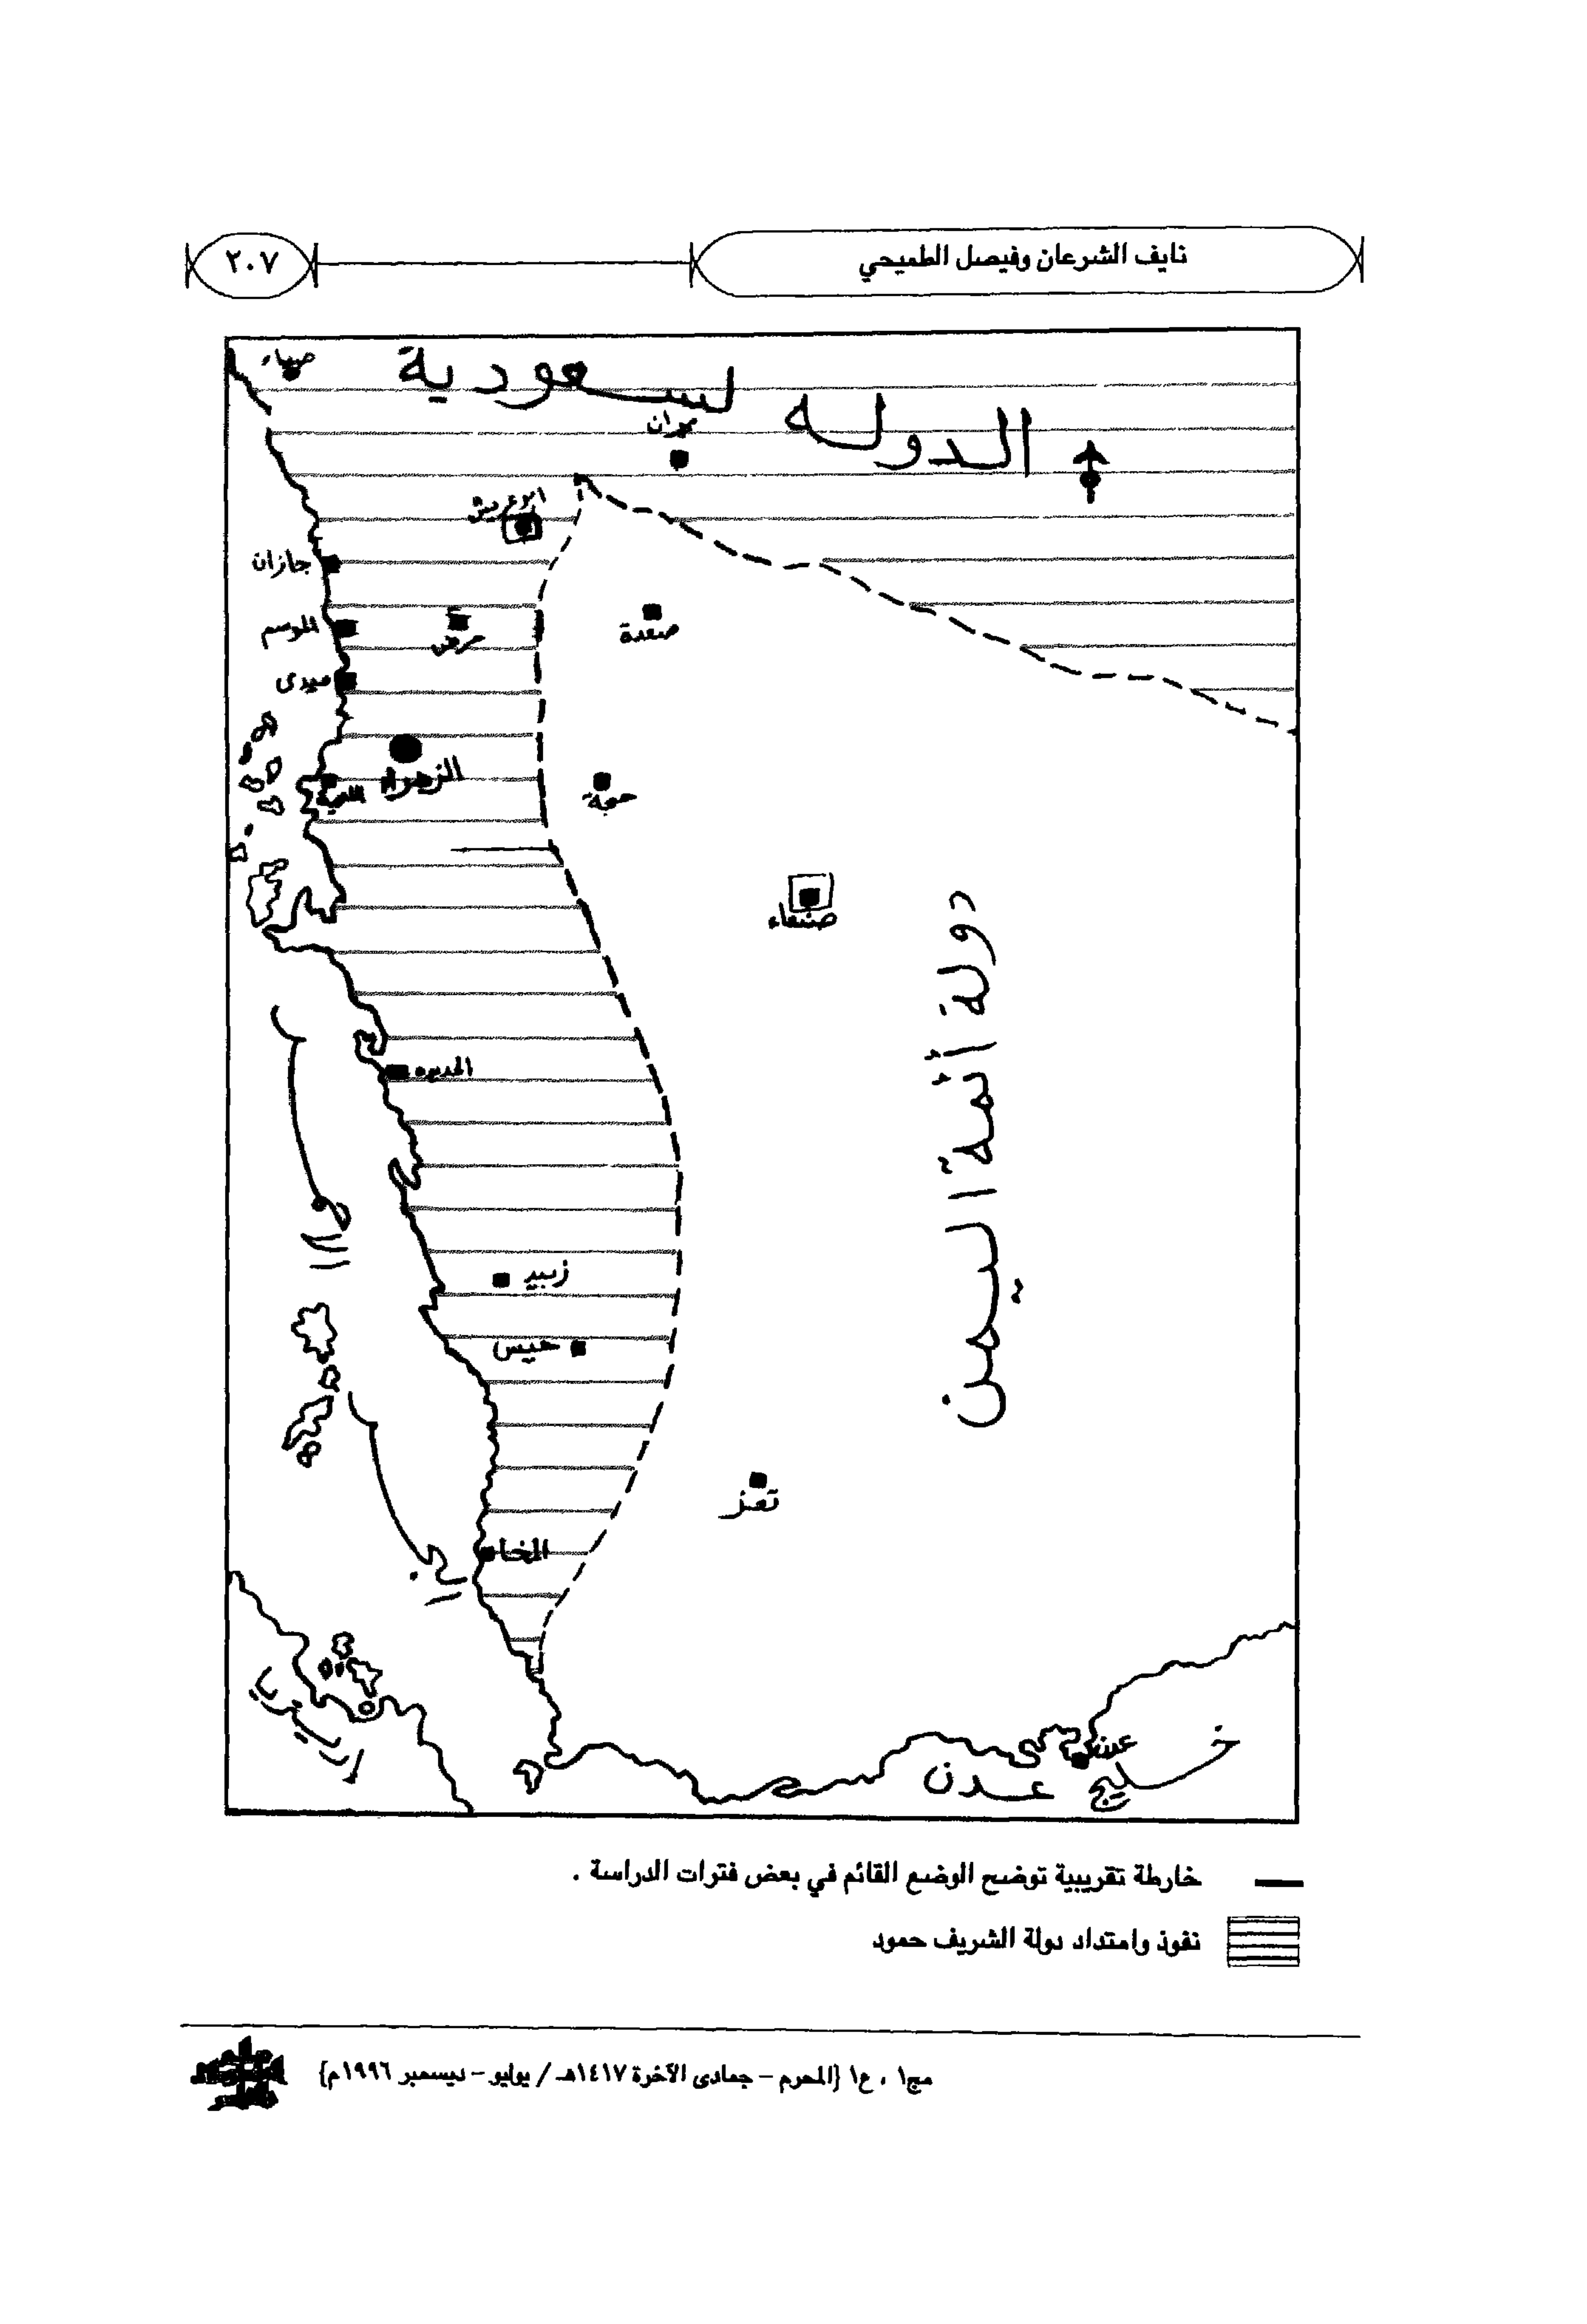 نايف الشرعان وفيصل الطميحي
٢٠٧
صبياء
الدوله لسعودية
نجران
ابوعريش
جازان
الموسم
حرض
صعدة
ميدى
الزهراء
اللحية
حجة
صنعاء
دولة أئمة اليمن
الحديده
البحر الأحمر
زبيد
حيس
تعز
المخا
عدن
خليج عدن
خارطة تقريبية توضح الوضع القائم في بعض فترات الدراسة .
نفوذ وامتداد دولة الشريف حمود
مج١ ، ع١ {المحرم – جمادى الآخرة ١٤١٧هـ / يوليو – ديسمبر ١٩٩٦م}